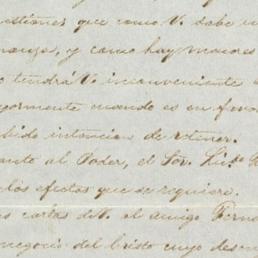 estiones que como V. sabe
y como hay maiores
tendrá V. inconveniente
ormente cuando es en
bido intencion de retener.
ante al Poder, el Sor.
los efectos que se requiere.
cartas de V. el amigo Ferna
negocio del bristo cuyo